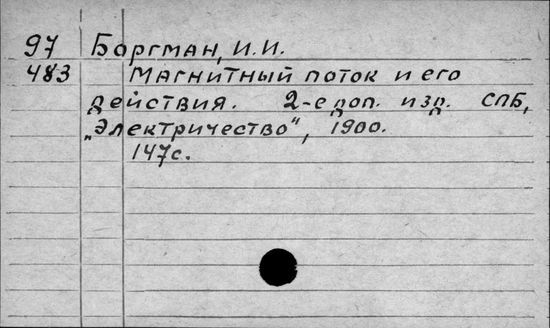 97 Боргман, И.И.
483 Магнитный поток и его
действия. 2-е доп. изд. СПБ,
„Электричество“, 1900.
147с.